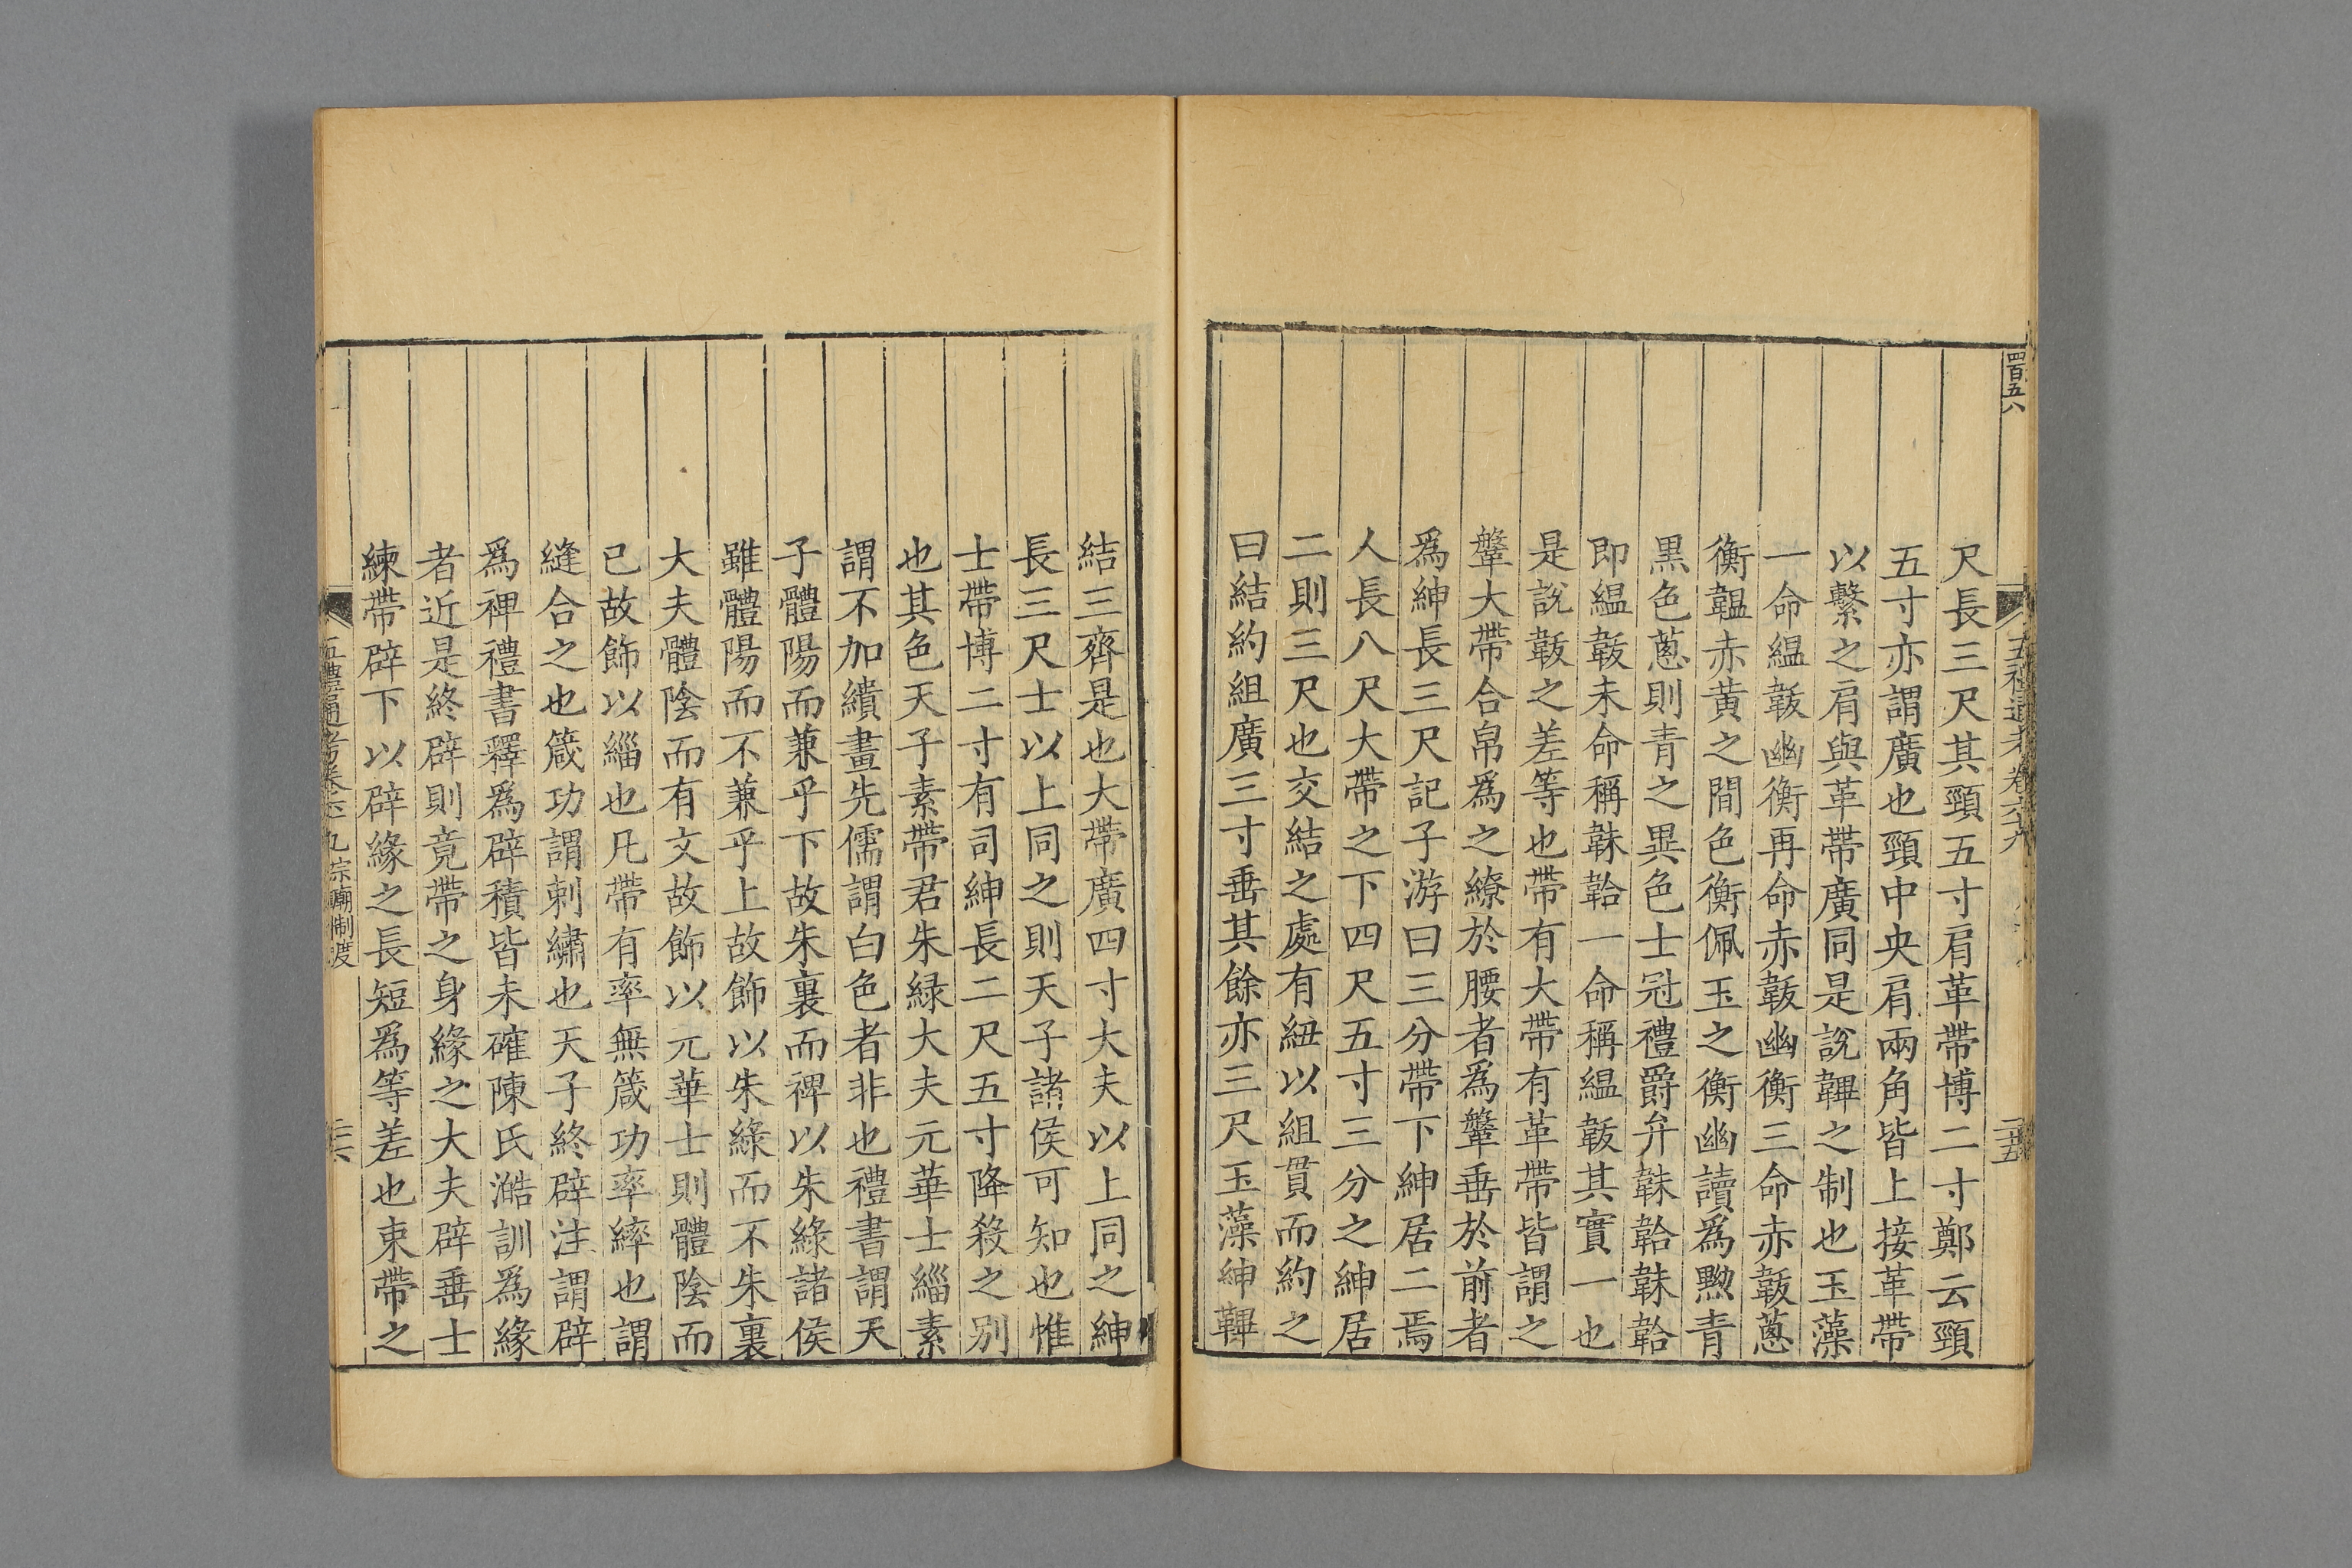 四百五八
五禮通考卷六十九
二十五
尺長三尺其頸五寸肩革帶博二寸鄭云頸
五寸亦謂廣也頸中央肩兩角皆上接革帶
以繫之肩與革帶廣同是說韠之制也玉藻
一命縕韍幽衡再命赤韍幽衡三命赤韍蔥
衡韞赤黄之間色衡佩玉之衡幽讀爲黝青
黒色蔥則青之異色士冠禮爵弁韎韐韎韐
即縕韍未命稱韎韐一命稱縕韍其實一也
是說韍之差等也帶有大帶有革帶皆謂之
鞶大帶合帛爲之繚於腰者爲鞶垂於前者
爲紳長三尺記子游曰三分帶下紳居二焉
人長八尺大帶之下四尺五寸三分之紳居
二則三尺也交結之處有紐以組貫而約之
曰結約組廣三寸垂其餘亦三尺玉藻紳韠
結三齊是也大帶廣四寸大夫以上同之紳
長三尺士以上同之則天子諸侯可知也惟
士帶博二寸有司紳長二尺五寸降殺之别
也其色天子素帶君朱緑大夫元華士緇素
謂不加繢畫先儒謂白色者非也禮書謂天
子體陽而兼乎下故朱裏而裨以朱綠諸侯
雖體陽而不兼乎上故飾以朱綠而不朱裏
大夫體陰而有文故飾以元華士則體陰而
已故飾以緇也凡帶有率無箴功率繂也謂
縫合之也箴功謂刺繡也天子終辟注謂辟
爲裨禮書釋爲辟積皆未確陳氏澔訓爲緣
者近是終辟則竟帶之身緣之大夫辟垂士
練帶辟下以辟緣之長短爲等差也束帶之
五禮通考卷六十九 宗廟制度
二十六